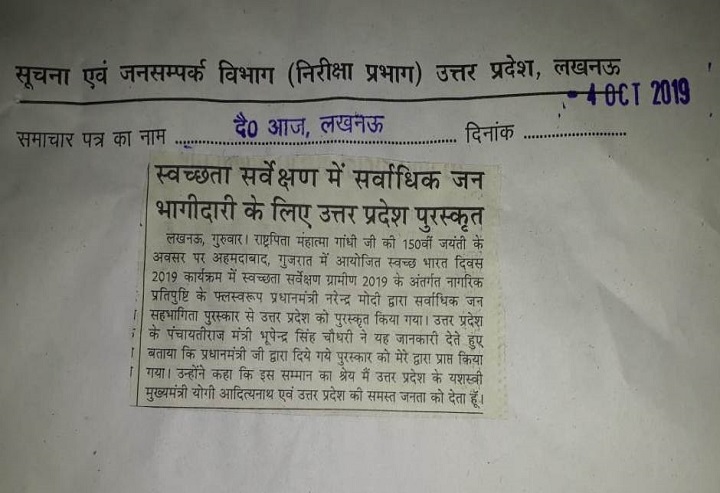 सूचना एवं जनसम्पर्क विभाग (निरीक्षा प्रभाग) उत्तर प्रदेश, लखनऊ
- 4 OCT 2019
समाचार पत्र का नाम दै0 आज, लखनऊ दिनांक
स्वच्छता सर्वेक्षण में सर्वाधिक जन
भागीदारी के लिए उत्तर प्रदेश पुरस्कृत
लखनऊ, गुरुवार। राष्ट्रपिता महात्मा गांधी जी की 150वीं जयंती के
अवसर पर अहमदाबाद, गुजरात में आयोजित स्वच्छ भारत दिवस
2019 कार्यक्रम में स्वच्छता सर्वेक्षण ग्रामीण 2019 के अंतर्गत नागरिक
प्रतिपुष्टि के फलस्वरूप प्रधानमंत्री नरेन्द्र मोदी द्वारा सर्वाधिक जन
सहभागिता पुरस्कार से उत्तर प्रदेश को पुरस्कृत किया गया। उत्तर प्रदेश
के पंचायतीराज मंत्री भूपेन्द्र सिंह चौधरी ने यह जानकारी देते हुए
बताया कि प्रधानमंत्री जी द्वारा दिये गये पुरस्कार को मेरे द्वारा प्राप्त किया
गया। उन्होंने कहा कि इस सम्मान का श्रेय मैं उत्तर प्रदेश के यशस्वी
मुख्यमंत्री योगी आदित्यनाथ एवं उत्तर प्रदेश की समस्त जनता को देता हूँ।